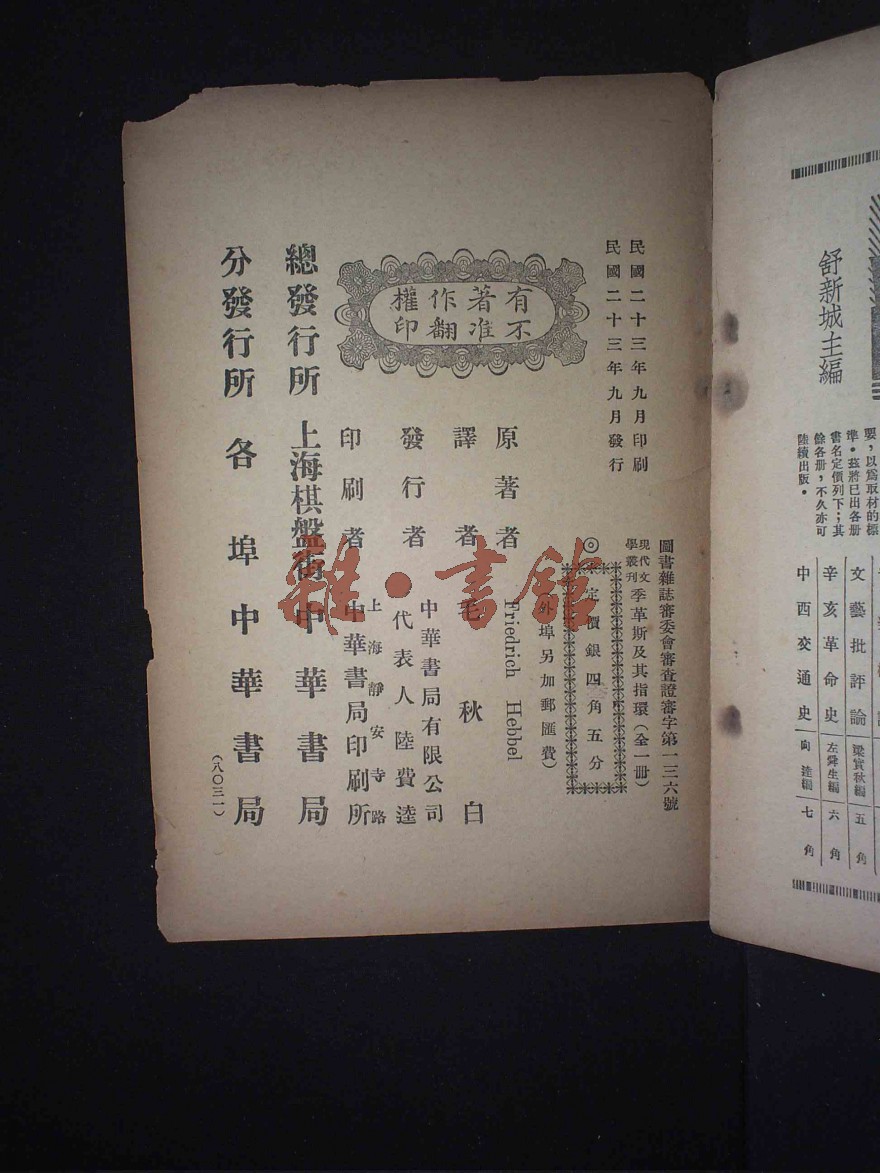 舒新城主編
要，以爲取材的標
準。茲將已出各册
書名定價列下；其
餘各册，不久亦可
陸續出版。
文藝批評論 梁實秋編 五角
辛亥革命史 左舜生編 六角
中西交通史 向達編 七角
圖書雜誌審委會審查證審字第一三六號
民國二十三年九月印刷
民國二十三年九月發行
現代文學叢刊 季革斯及其指環（全一册）
◎定價銀四角五分
外埠另加郵匯費）
有著作權
不准翻印
原著者 Friedrich Hebbel
譯者 毛秋白
發行者 中華書局有限公司
代表人陸費逵
印刷者 上海靜安寺路
中華書局印刷所
總發行所 上海棋盤街 中華書局
分發行所 各埠中華書局
（八〇三一）
雜·書館